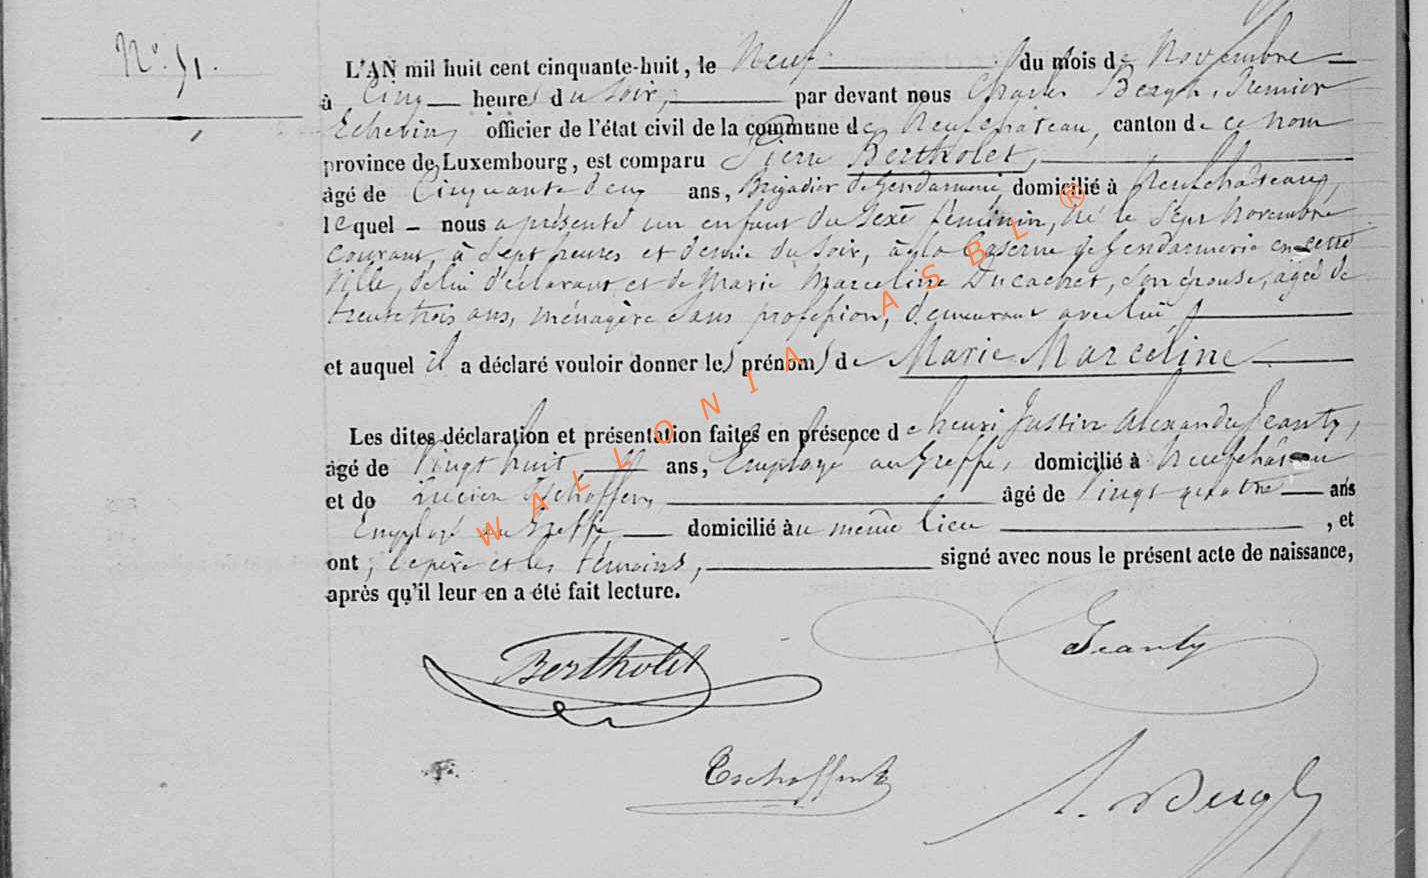 N° 51.
L'AN mil huit cent cinquante-huit, le Neuf du mois de Novembre
à Cinq heures du soir, par devant nous Charles Bergh, Premier
Echevin, officier de l'état civil de la commune de Neufchateau, canton de ce nom
province de Luxembourg, est comparu Pierre Bertholet,
âgé de Cinquante deux ans, Brigadier de Gendarmerie, domicilié à Neufchâteau,
lequel nous a présenté un enfant du sexe féminin, né le Sept Novembre
courant, à sept heures et demie du soir, à la Caserne de Gendarmerie en cette
Ville, de lui déclarant et de Marie Marceline Ducachet, son épouse, agée de
trente trois ans, ménagère sans profession, demeurant avec lui
et auquel il a déclaré vouloir donner les prénoms de Marie Marceline
Les dites déclaration et présentation faites en présence de henri Justin Alexandre Jeanty,
âgé de Vingt huit ans, Employé au Greffe, domicilié à Neufchâteau
et de Lucien Tschoffen, âgé de Vingt quatre ans
Employé au Greffe, domicilié au même lieu , et
ont, le père et les témoins, signé avec nous le présent acte de naissance,
après qu'il leur en a été fait lecture.
Bertholet
Jeanty
Tschoffen
Bergh
WALLONIA ASBL ®